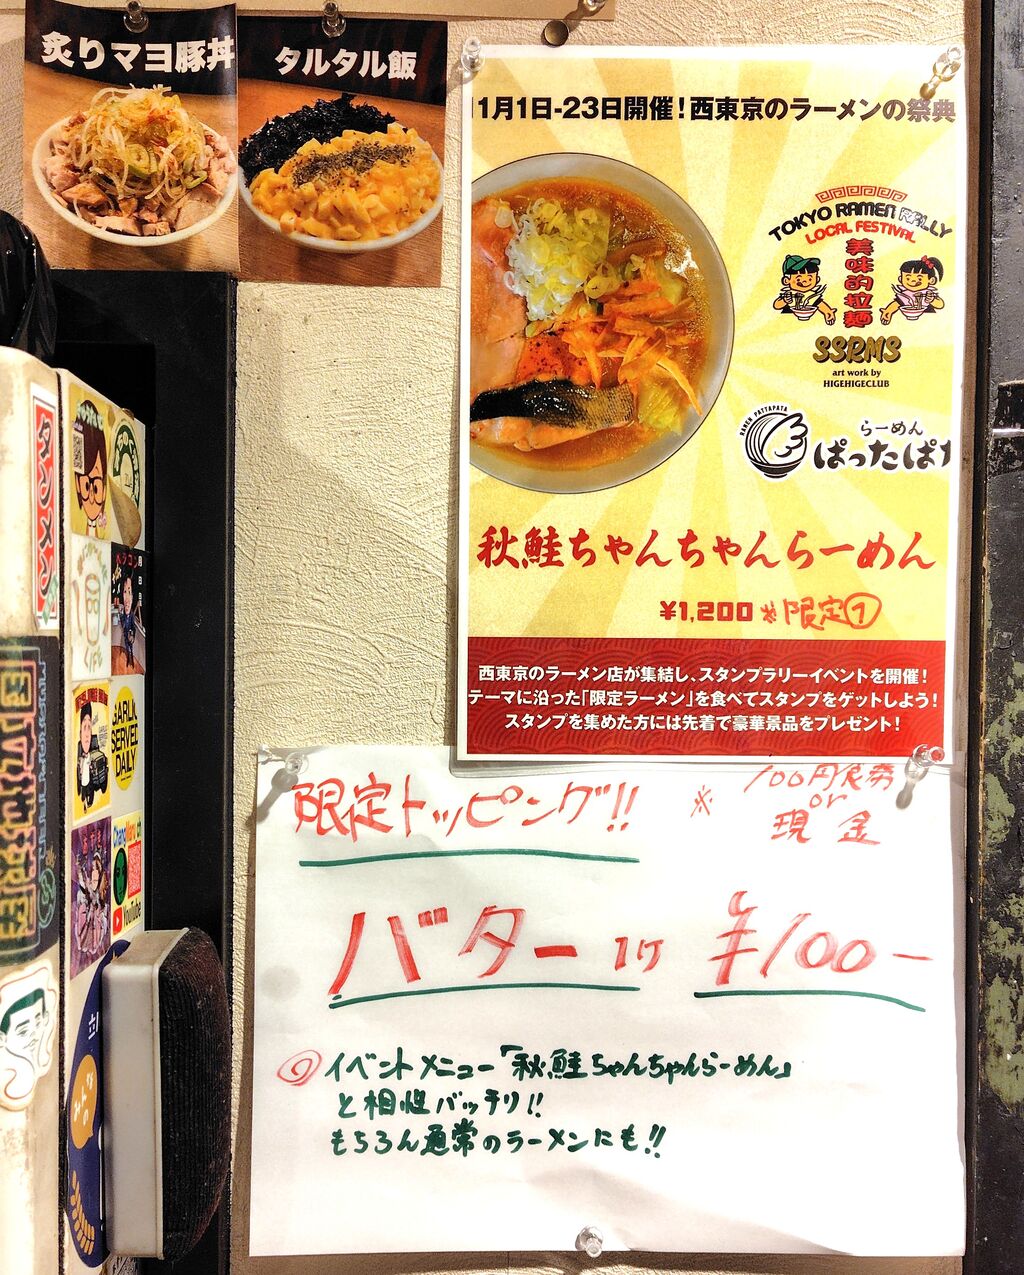 炙りマヨ豚丼
タルタル飯
11月1日-23日開催！西東京のラーメンの祭典
TOKYO RAMEN RALLY
LOCAL FESTIVAL
美味的拉麺
SSRMS
art work by
HIGEHIGECLUB
RAMEN PATTAPATA
らーめん
ぱったぱた
秋鮭ちゃんちゃんらーめん
¥1,200 ※限定⑦
西東京のラーメン店が集結し、スタンプラリーイベントを開催！
テーマに沿った「限定ラーメン」を食べてスタンプをゲットしよう！
スタンプを集めた方には先着で豪華景品をプレゼント！
限定トッピング!!
※ 100円食券
or
現金
バター 1ヶ ¥100ー
◎イベントメニュー「秋鮭ちゃんちゃんらーめん」
と相性バッチリ!!
もちろん通常のラーメンにも!!
タンメン
GARLIC
SERVED
DAILY
YouTube